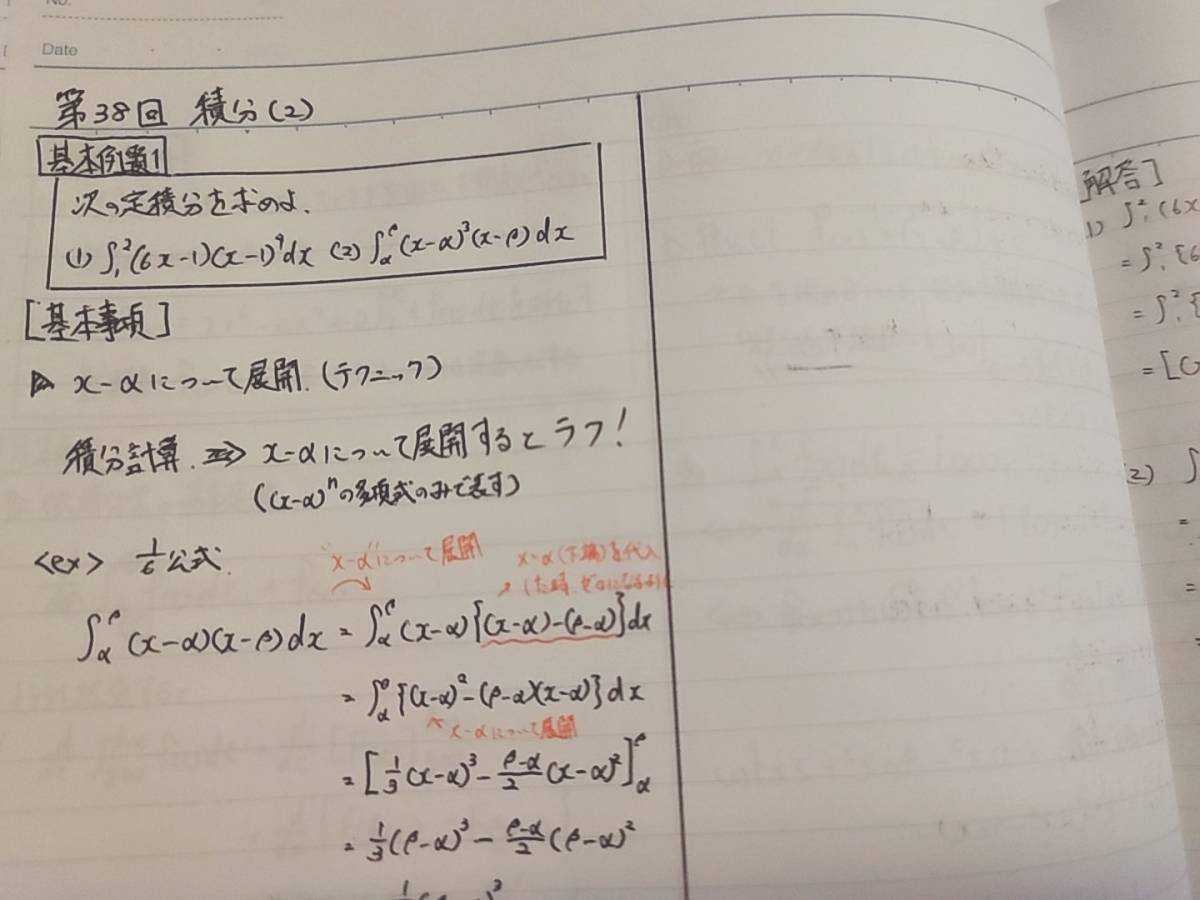 No.
Date
第38回 積分(2)
基本例題1
次の定積分を求めよ.
(1) ∫₁²(6x-1)(x-1)⁹dx (2) ∫_α^β (x-α)³(x-β)dx
[基本事項]
▷ x-αについて展開.(テクニック)
積分計算. ⇒ x-αについて展開するとラク!
((x-α)ⁿの多項式のみで表す)
<ex> 1/6公式.
"x-α"について展開
x=α(下端)を代入
した時、ゼロになるように
∫_α^β (x-α)(x-β)dx = ∫_α^β (x-α){(x-α)-(β-α)}dx
= ∫_α^β {(x-α)²-(β-α)(x-α)}dx
x-αについて展開
= [1/3(x-α)³ - (β-α)/2 (x-α)²]_α^β
= 1/3(β-α)³ - (β-α)/2 (β-α)²
[解答]
(1) ∫₁²(6x
= ∫₁²{6
= ∫₁²{
= [(
(2) ∫
=
=